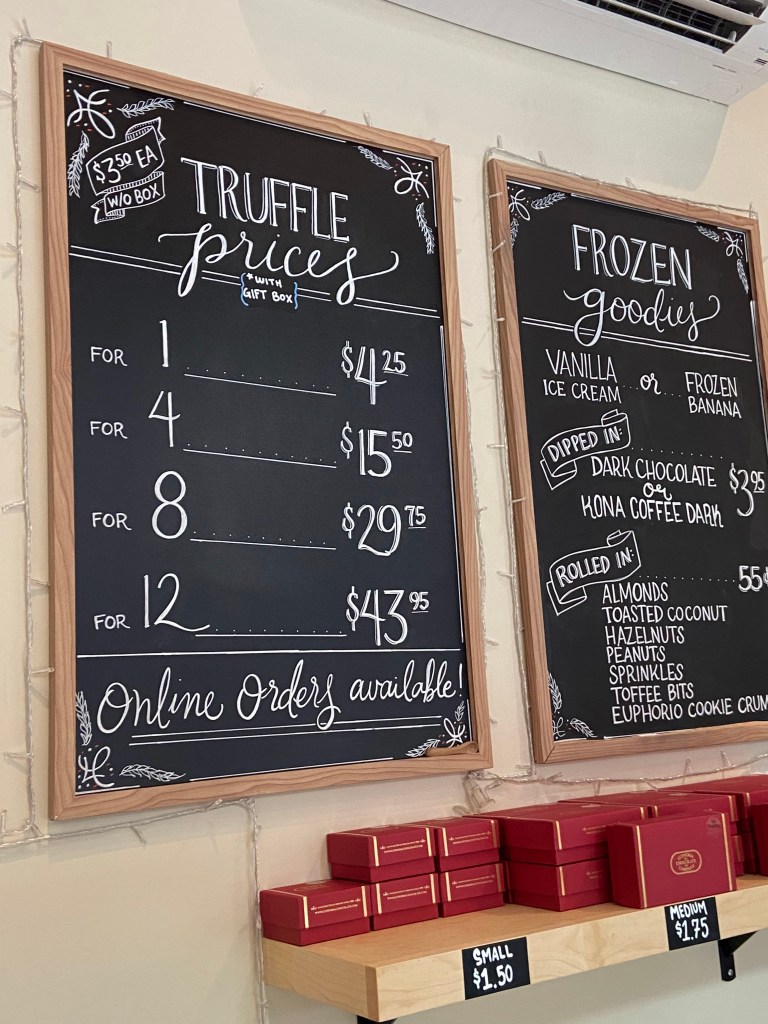 $3.50 EA
W/O BOX
TRUFFLE
prices
*WITH
GIFT BOX
FOR 1 $4.25
FOR 4 $15.50
FOR 8 $29.75
FOR 12 $43.95
Online Orders available!
FROZEN
goodies
VANILLA
ICE CREAM or FROZEN
BANANA
DIPPED IN:
DARK CHOCOLATE
or $3.95
KONA COFFEE DARK
ROLLED IN:
55¢
ALMONDS
TOASTED COCONUT
HAZELNUTS
PEANUTS
SPRINKLES
TOFFEE BITS
EUPHORIO COOKIE CRUM
SMALL
$1.50
MEDIUM
$1.75